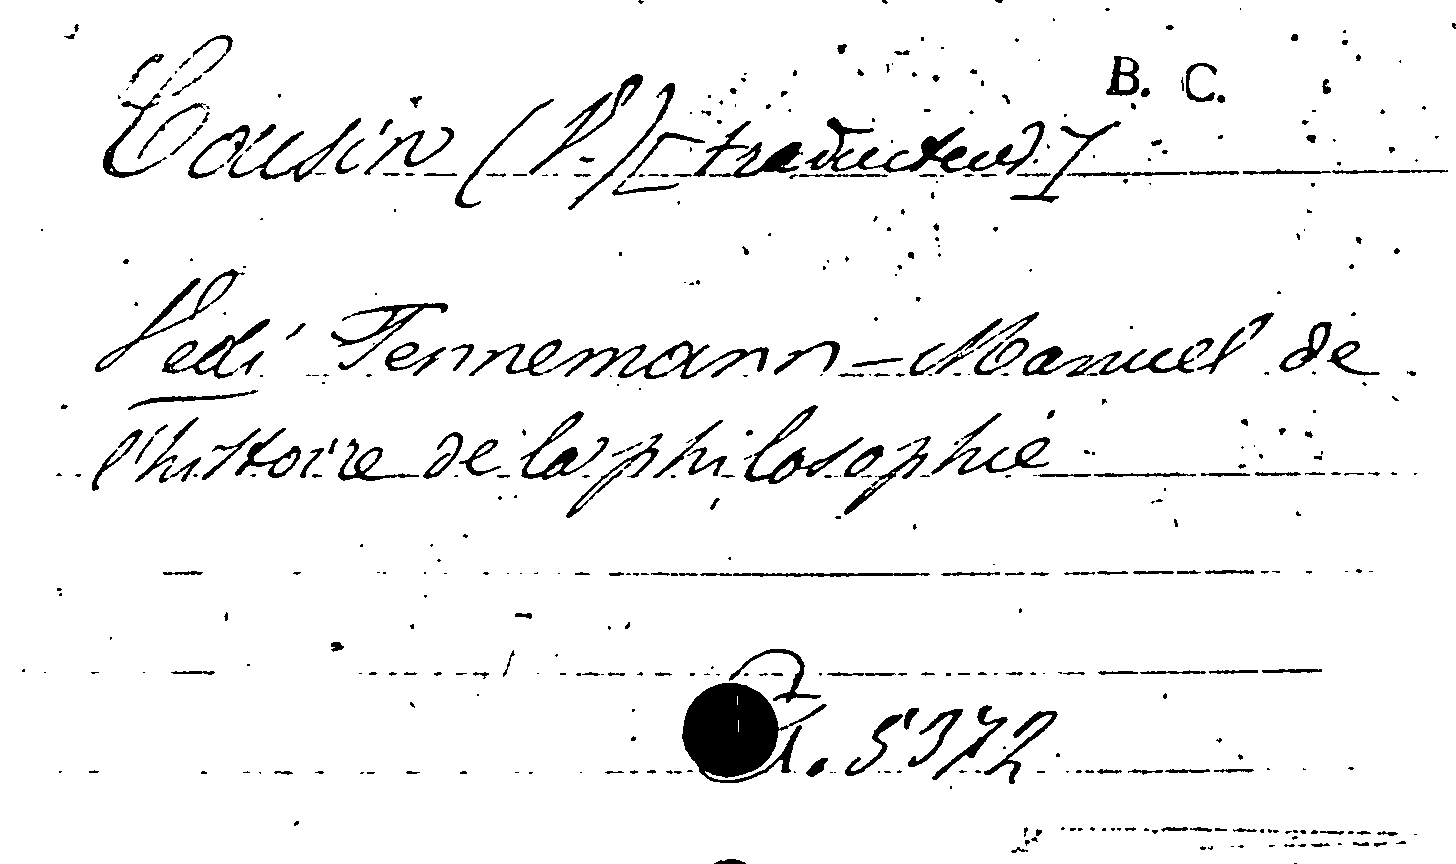 B. C.
Cousin (V.) [traducteur]
Vedi Tennemann - Manuel de
l'histoire de la philosophie
5372